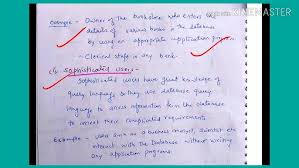 SHOT BY CINEMASTER
Example - Owner of the bookstore who enters the
details of various books in the database
by using an appropriate application program
- Clerical staff in any bank.
c) Sophisticated users -
Sophisticated users have great knowledge of
query language so they use database query
language to access information from the database
to meet their complicated requirements.
Example - Users such as a business analyst, scientist etc
interact with the database without writing
any application programs.